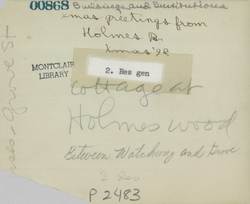 00868 Buildings and Institutions
xmas greetings from
Holmes B.
xmas '98
MONTCLAIR
LIBRARY
2. Res gen
Cottage at
Holmeswood
Between Watchung and Grove
2 Res
P 2483
Grove St.